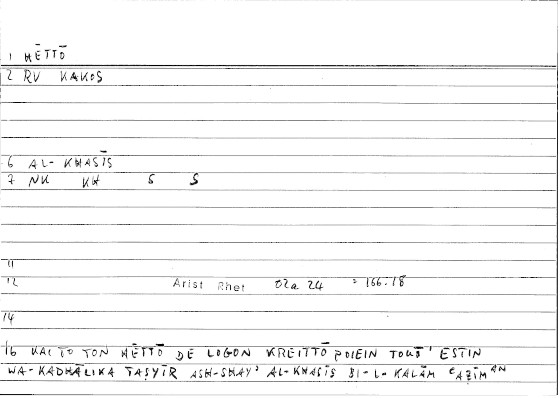 1 HĒTTŌ
2 RV KAKOS
6 AL-KHASĪS
7 NK KH S S
11
12 Arist Rhet 02a 24 = 166.18
14
16 KAI TO TON HĒTTŌ DE LOGON KREITTŌ POIEIN TOUT' ESTIN
WA-KADHĀLIKA TAṢYĪR ASH-SHAYʾ AL-KHASĪS BI-L-KALĀM ʿAẒĪMAN